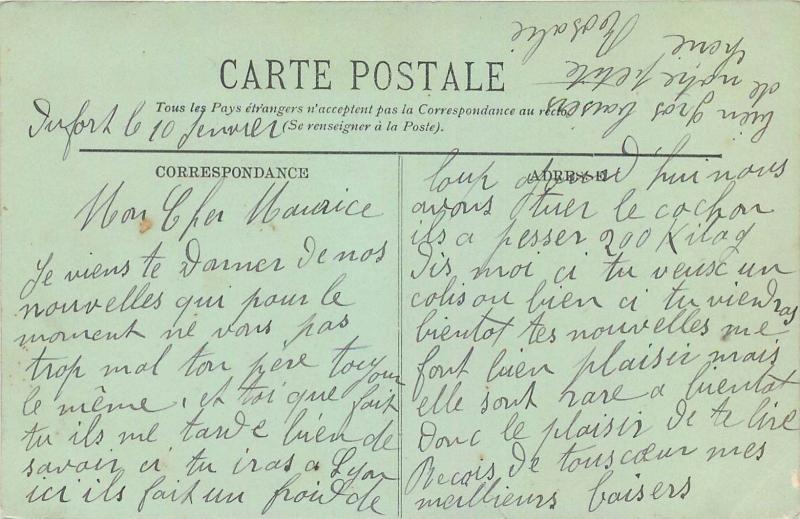 CARTE POSTALE
Tous les Pays étrangers n'acceptent pas la Correspondance au recto
(Se renseigner à la Poste).
Dufort le 10 Jenvier
CORRESPONDANCE
Mon Cher Maurice
Je viens te Donner De nos
nouvelles qui pour le
moment ne vons pas
trop mal ton père toujour
le même, et toi que fait
tu ils me tarde bien de
savoir ci tu iras a Lyon
ici ils fait un froid de
ADRESSE
loup aujourd'hui nous
avons tuer le cochon
ils a pesser 200 Kilog
Dis moi ci tu veusc un
colis ou bien ci tu viendras
bientot tes nouvelles me
font bien plaisir mais
elle sont rare a bientot
Donc le plaisir De te lire
Recois De tous cœur mes
meillieurs baisers
bien gros baisers
de notre petite
cherie
Rosalie